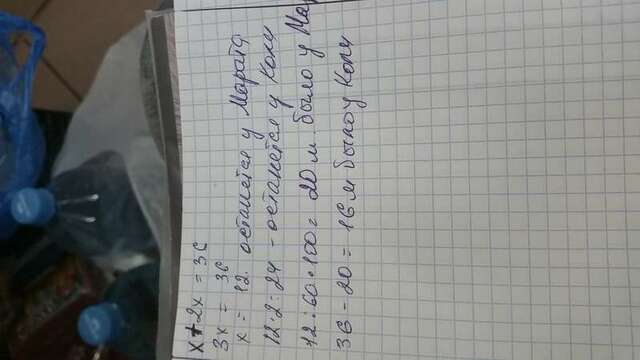 x+2x = 36
3x = 36
x = 12. останется у Марата
12·2=24 - останется у Коли
12:60·100= 20 м. было у Ма
36 - 20 = 16 м было у Коли